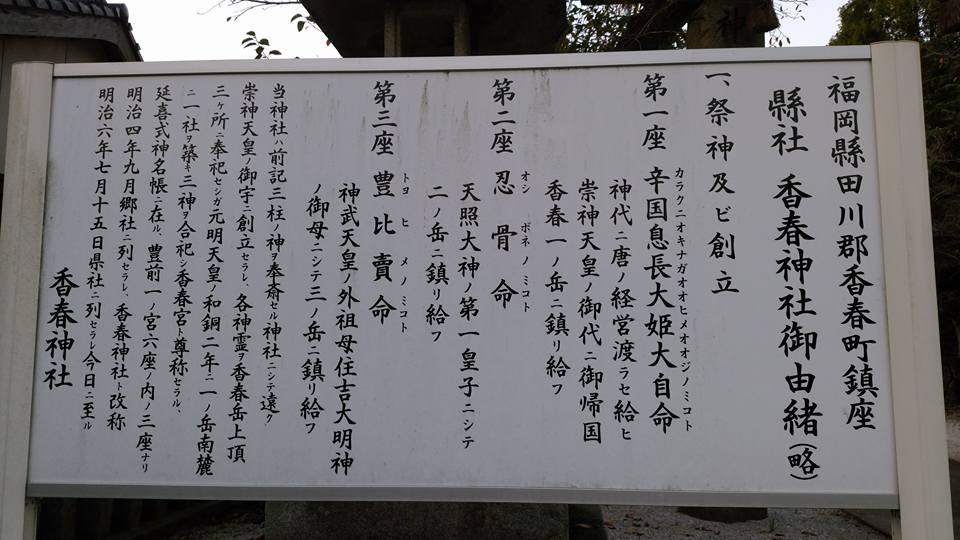 福岡縣田川郡香春町鎮座
縣社 香春神社御由緒(略)
一、祭神及ビ創立
第一座 辛国息長大姫大自命
カラクニオキナガオオヒメオオジノミコト
神代ニ唐ノ経営渡ラセ給ヒ
崇神天皇ノ御代ニ御帰国
香春一ノ岳ニ鎮リ給フ
第二座 忍骨命
オシ ボネノミコト
天照大神ノ第一皇子ニシテ
二ノ岳ニ鎮リ給フ
第三座 豊比賣命
トヨ ヒ メノミコト
神武天皇ノ外祖母住吉大明神
ノ御母ニシテ三ノ岳ニ鎮リ給フ
当神社ハ前記三柱ノ神ヲ奉斎セル神社ニシテ遠ク
崇神天皇ノ御宇ニ創立セラレ、各神霊ヲ香春岳上頂
三ヶ所ニ奉祀セシガ元明天皇ノ和銅二年ニ一ノ岳南麓
ニ一社ヲ築キ三神ヲ合祀シ香春宮ト尊称セラル、
延喜式神名帳ニ在ル、豊前一ノ宮六座ノ内ノ三座ナリ
明治四年九月郷社ニ列セラレ、香春神社ト改称
明治六年七月十五日県社ニ列セラレ今日ニ至ル
香春神社
神